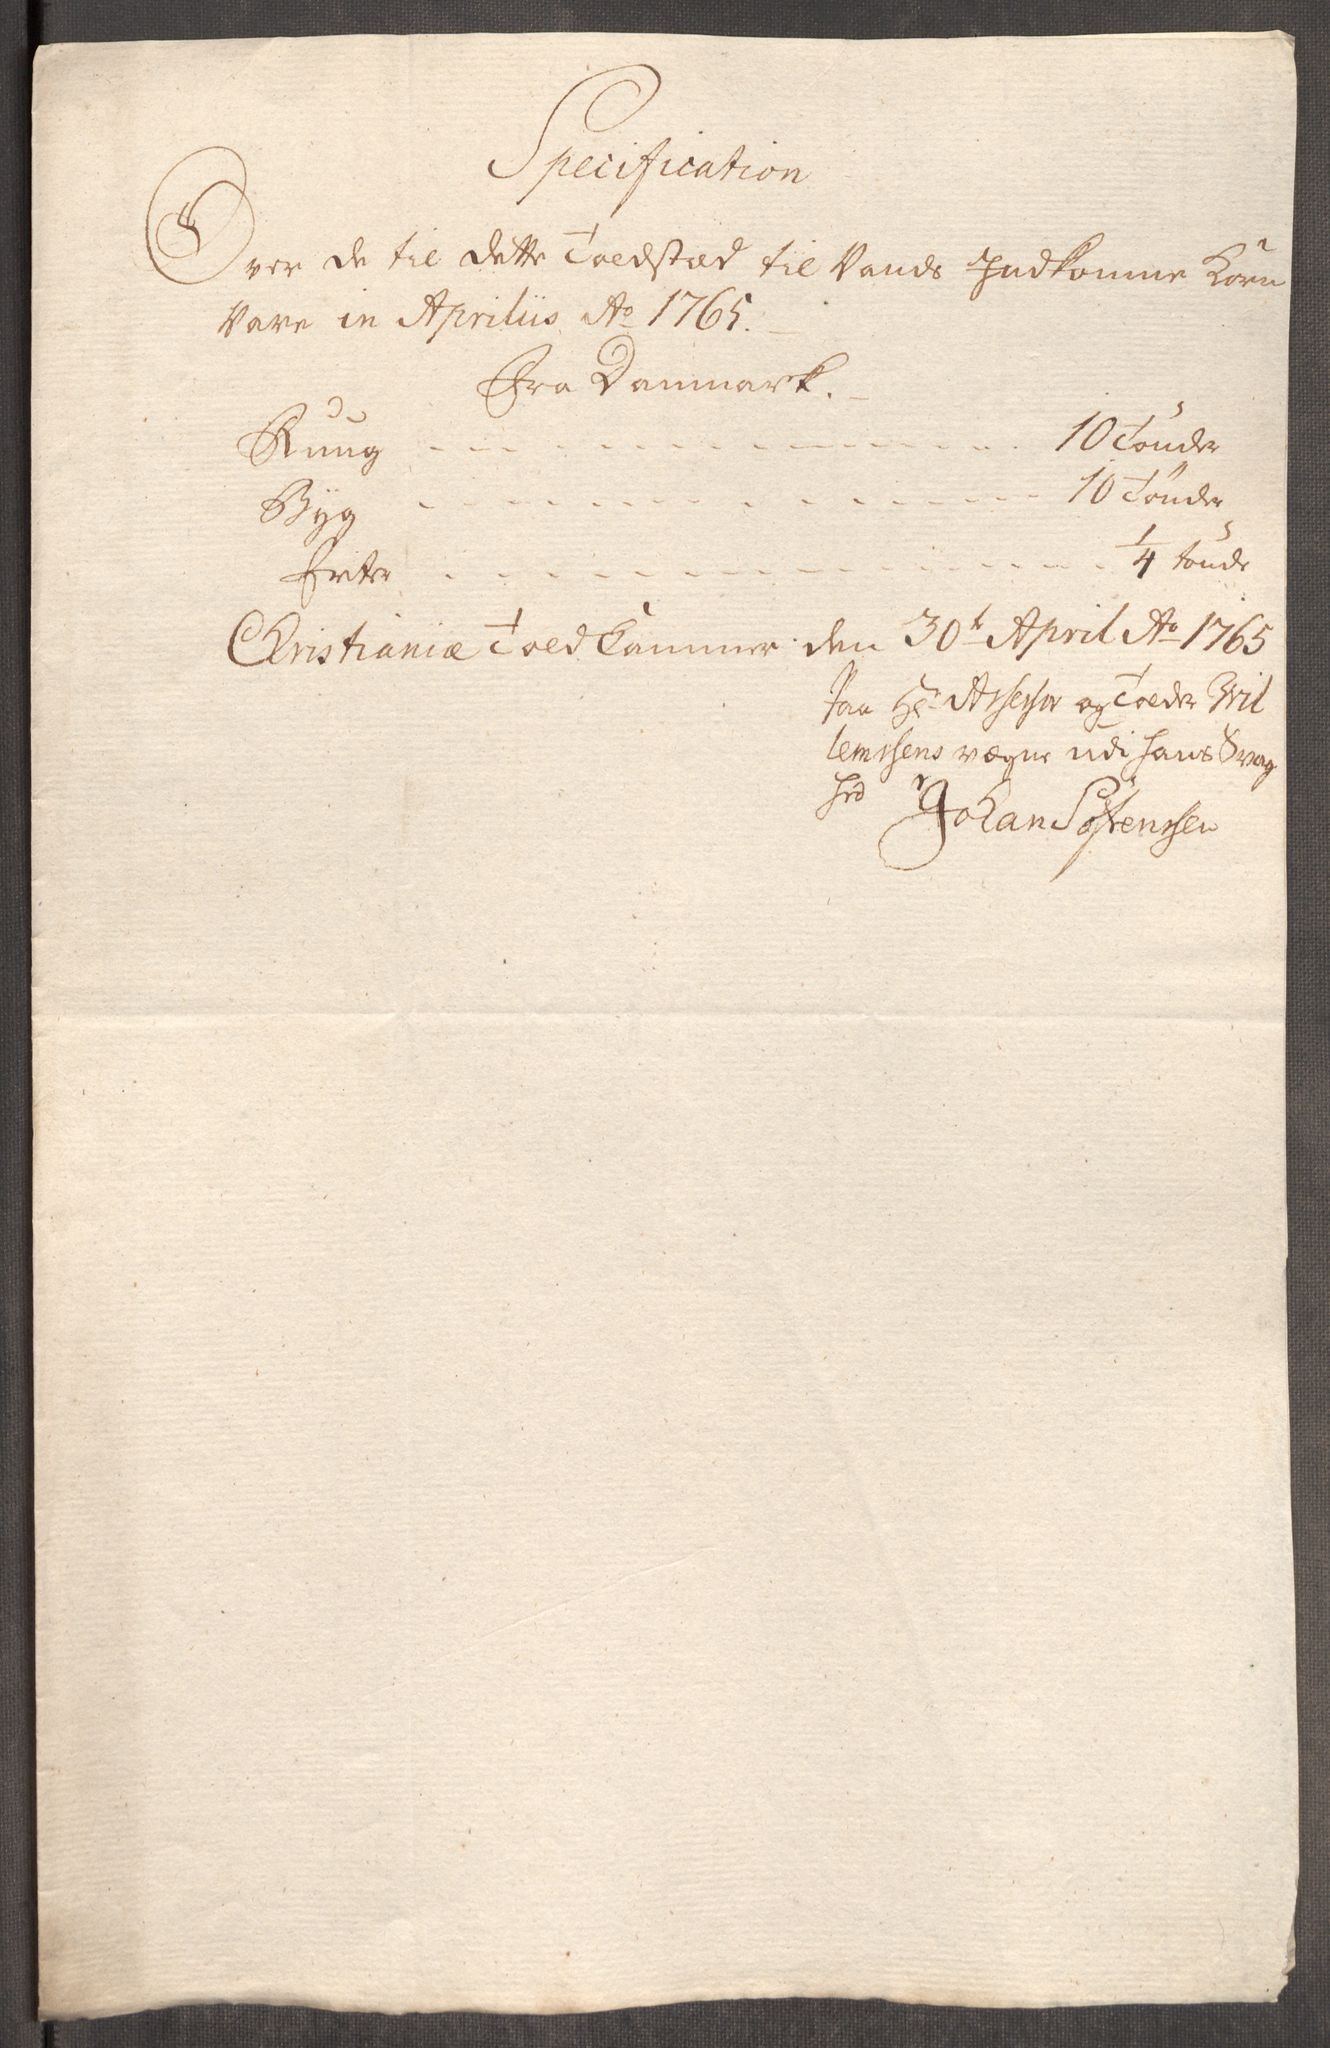 Specification
Over de til dette Toldstæd til Vands Indkomne Korn
Vare in Apriliis Ao 1765.
Fra Danmark.
Rung 10 Tønder
Byg 10 Tønder
Erter 1/4 tønde
Christianiæ Told Kammer den 30t April Ao 1765
Paa Hr Assessor og Tolder Wil
lemssens vægne udi hans Svag
hed Johan Pettenssen